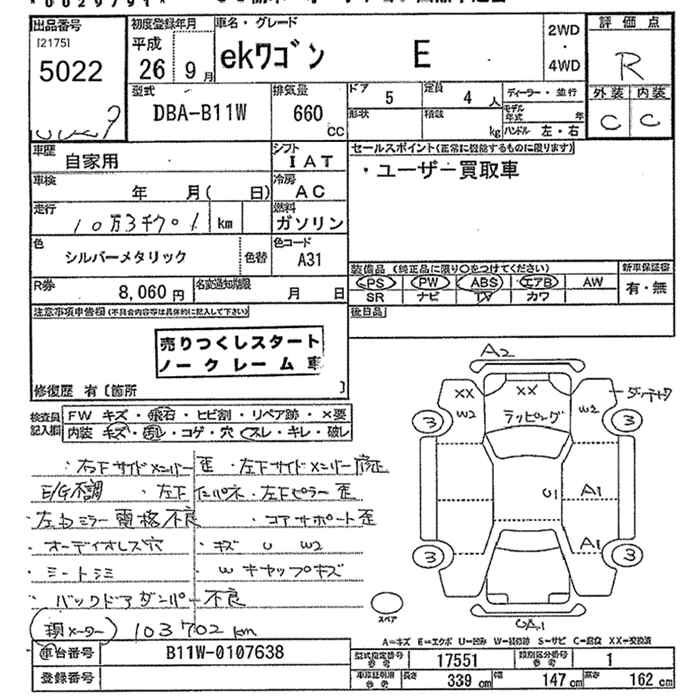 出品番号
[2175]
5022
初度登録年月
平成
26 9月
車名・グレード
ekワゴン E
2WD
・
4WD
評価点
R
外装 内装
C C
型式
DBA-B11W
排気量
660
CC
ドア 5
定員 4 人
形状
積載 kg
ディーラー・並行
モデル年式 年
ハンドル 左・右
車歴 自家用
シフト IAT
車検 年 月( 日)
冷房 AC
走行 km
燃料 ガソリン
色 シルバーメタリック 色替
色コード A31
R券 8,060円
名変通知期限 月 日
セールスポイント(正常に機能するものに限ります)
・ユーザー買取車
装備品 (純正品に限り○をつけてください)
PS PW ABS エアB AW
SR ナビ TV カワ
新車保証書
有・無
後日品
注意事項申告欄(不具合内容等は具体的に記入して下さい)
売りつくしスタート
ノークレーム車
修復歴 有[箇所 ]
検査員記入欄
FW キズ・飛石・ヒビ割・リペア跡・×要
内装 キズ・汚レ・コゲ・穴・スレ・キレ・破レ
・右Fサイドメンバー歪 ・左Fサイドメンバー修正
E/G不調 ・左Fインパネ・左Fピラー歪
・左右ミラー電格不良 ・コアサポート歪
・オーディオレス穴 ・キズ U W2
・シートシミ ・Wキャップキズ
・バックドアダンパー不良
(現メーター) 103702km
A2
XX XX
W2 ラッピング W2
3 3
U1 A1
A1
3 3
スペア
UA1
A=キズ E=エクボ U=凹み W=補修跡 S=サビ C=腐食 XX=交換済
車台番号 B11W-0107638
登録番号
型式指定番号 参考 17551
類別区分番号 参考 1
車検証記載 参考 長さ 339cm 幅 147cm 高さ 162cm